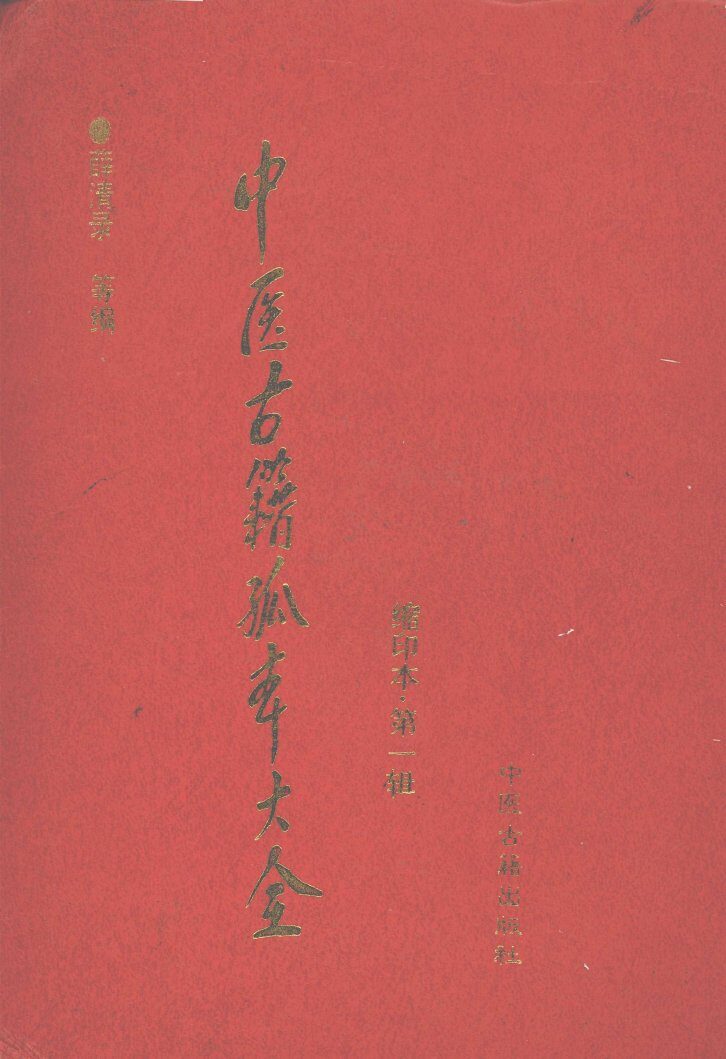 薛清录 等编
中医古籍孤本大全
缩印本·第一辑
中医古籍出版社